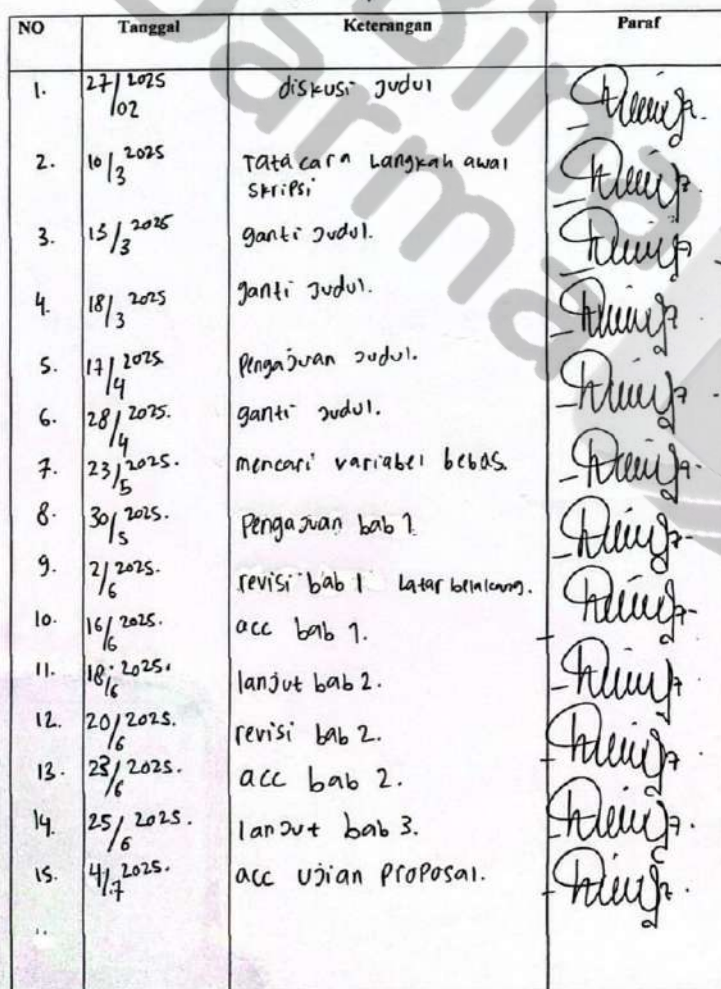 Bina
Darma
NO Tanggal Keterangan Paraf
1. 27/02 2025 diskusi judul
2. 10/3 2025 Tata cara Langkah awal
skripsi
3. 15/3 2025 ganti judul.
4. 18/3 2025 ganti judul.
5. 17/4 2025 Pengajuan judul.
6. 28/4 2025. ganti judul.
7. 23/5 2025. mencari variabel bebas.
8. 30/5 2025. Pengajuan bab 1
9. 2/6 2025. revisi bab 1 Latar belakang.
10. 16/6 2025. acc bab 1.
11. 18/6 2025. lanjut bab 2.
12. 20/6 2025. revisi bab 2.
13. 23/6 2025. acc bab 2.
14. 25/6 2025. lanjut bab 3.
15. 4/7 2025. acc ujian Proposal.